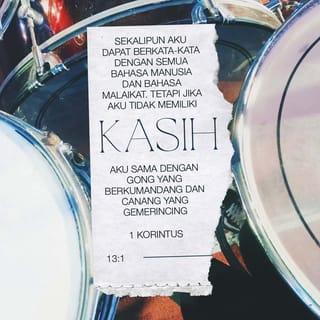 SEKALIPUN AKU
DAPAT BERKATA-KATA
DENGAN SEMUA
BAHASA MANUSIA
DAN BAHASA
MALAIKAT. TETAPI JIKA
AKU TIDAK MEMILIKI
KASIH
AKU SAMA DENGAN
GONG YANG
BERKUMANDANG DAN
CANANG YANG
GEMERINCING
1 KORINTUS
13:1